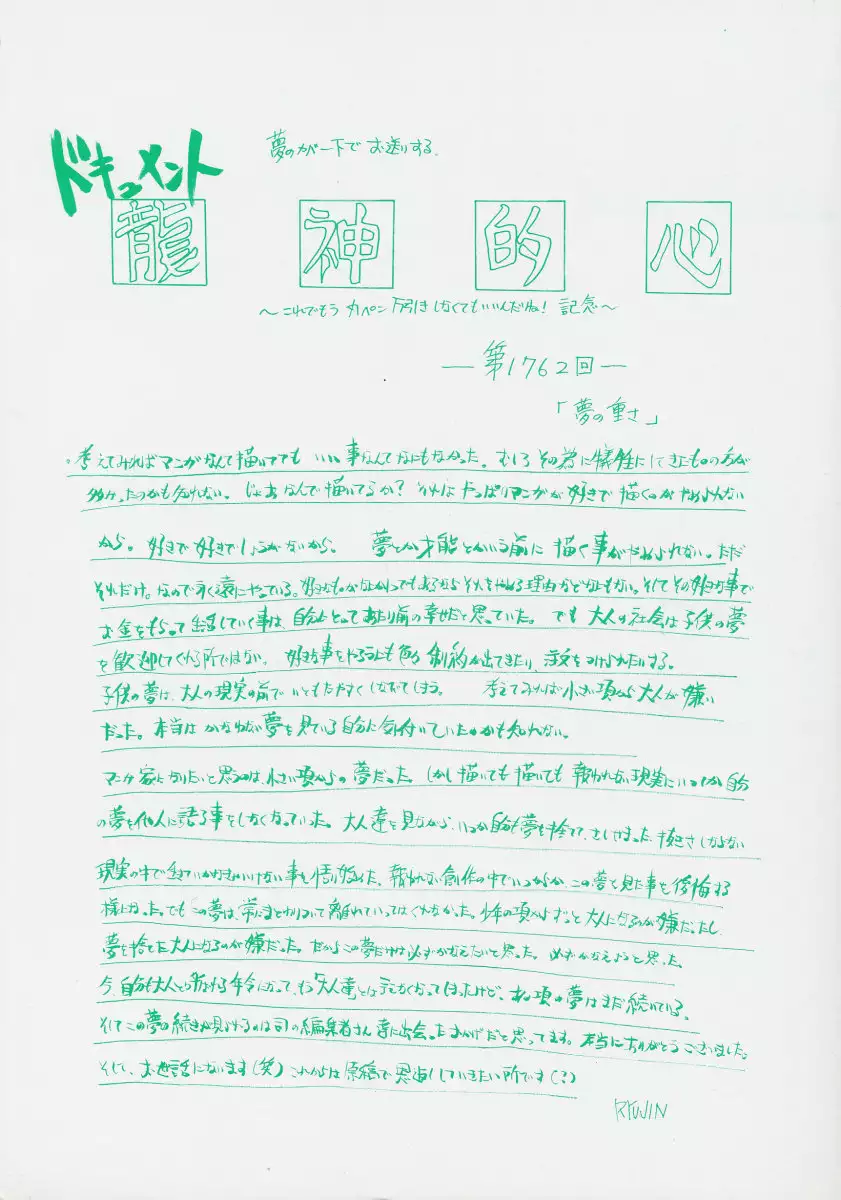 ドキュメント
夢のカバー下でお送りする
龍神的心
〜これでもう カペン しなくてもいいんだね! 記念〜
—第1762回—
「夢の重さ」
。考えてみればマンガなんて描いててもいい事なんてなにもなかった。むしろその為に犠牲にしてきたものの方が
多かったのかも知れない。じゃあなんで描いてるか? それはやっぱりマンガが好きで描くのがやめられない
から。好きで好きでしょうがないから。 夢とか才能とかいう前に 描く事がやめられない。ただ
それだけ。なので永遠にやっている。好きなものがなにかひとつでもあるならそれをやめる理由などなにもない。そしてその好きな事で
お金をもらって生活していく事は、自分にとってあたり前の幸せだと思っていた。でも大人の社会は子供の夢
を歓迎してくれる所ではない。 好きな事をやるにも色々制約が出てきたり、注文をつけられたりする。
子供の夢は、大人の現実の前でいともたやすくしおれてしまう。 考えてみれば小さい頃から大人が嫌い
だった。本当はかなわない夢を見ている自分に気付いていたのかも知れない。
マンガ家になりたいと思うのは、小さい頃からの夢だった。しかし描いても描いても報われない現実にいつしか自分
の夢を他人に語る事をしなくなっていった。大人達を見ながら、いつか自分も夢を捨て、
現実の中で生きていかなきゃいけない事を悟り始めた。報われない創作の中でいつからか、この夢を見た事を後悔する
様になった。でもこの夢は、常にまとわりついて離れていってはくれなかった。少年の頃からずっと大人になるのが嫌だったし、
夢を捨てた大人になるのが嫌だった。だからこの夢だけは必ずかなえたいと思った。必ずかなえようと思った。
今、自分も大人と呼ばれる年令になって、もう「大人達」とは言えなくなってしまったけど、あの頃の夢はまだ続いている。
そしてこの夢の続きが見られるのは司の編集者さん達に出会ったおかげだと思ってます。本当にありがとうございました。
そして、お世話になります(笑) これからは原稿で恩返ししていきたい所です(?)
RYUJIN